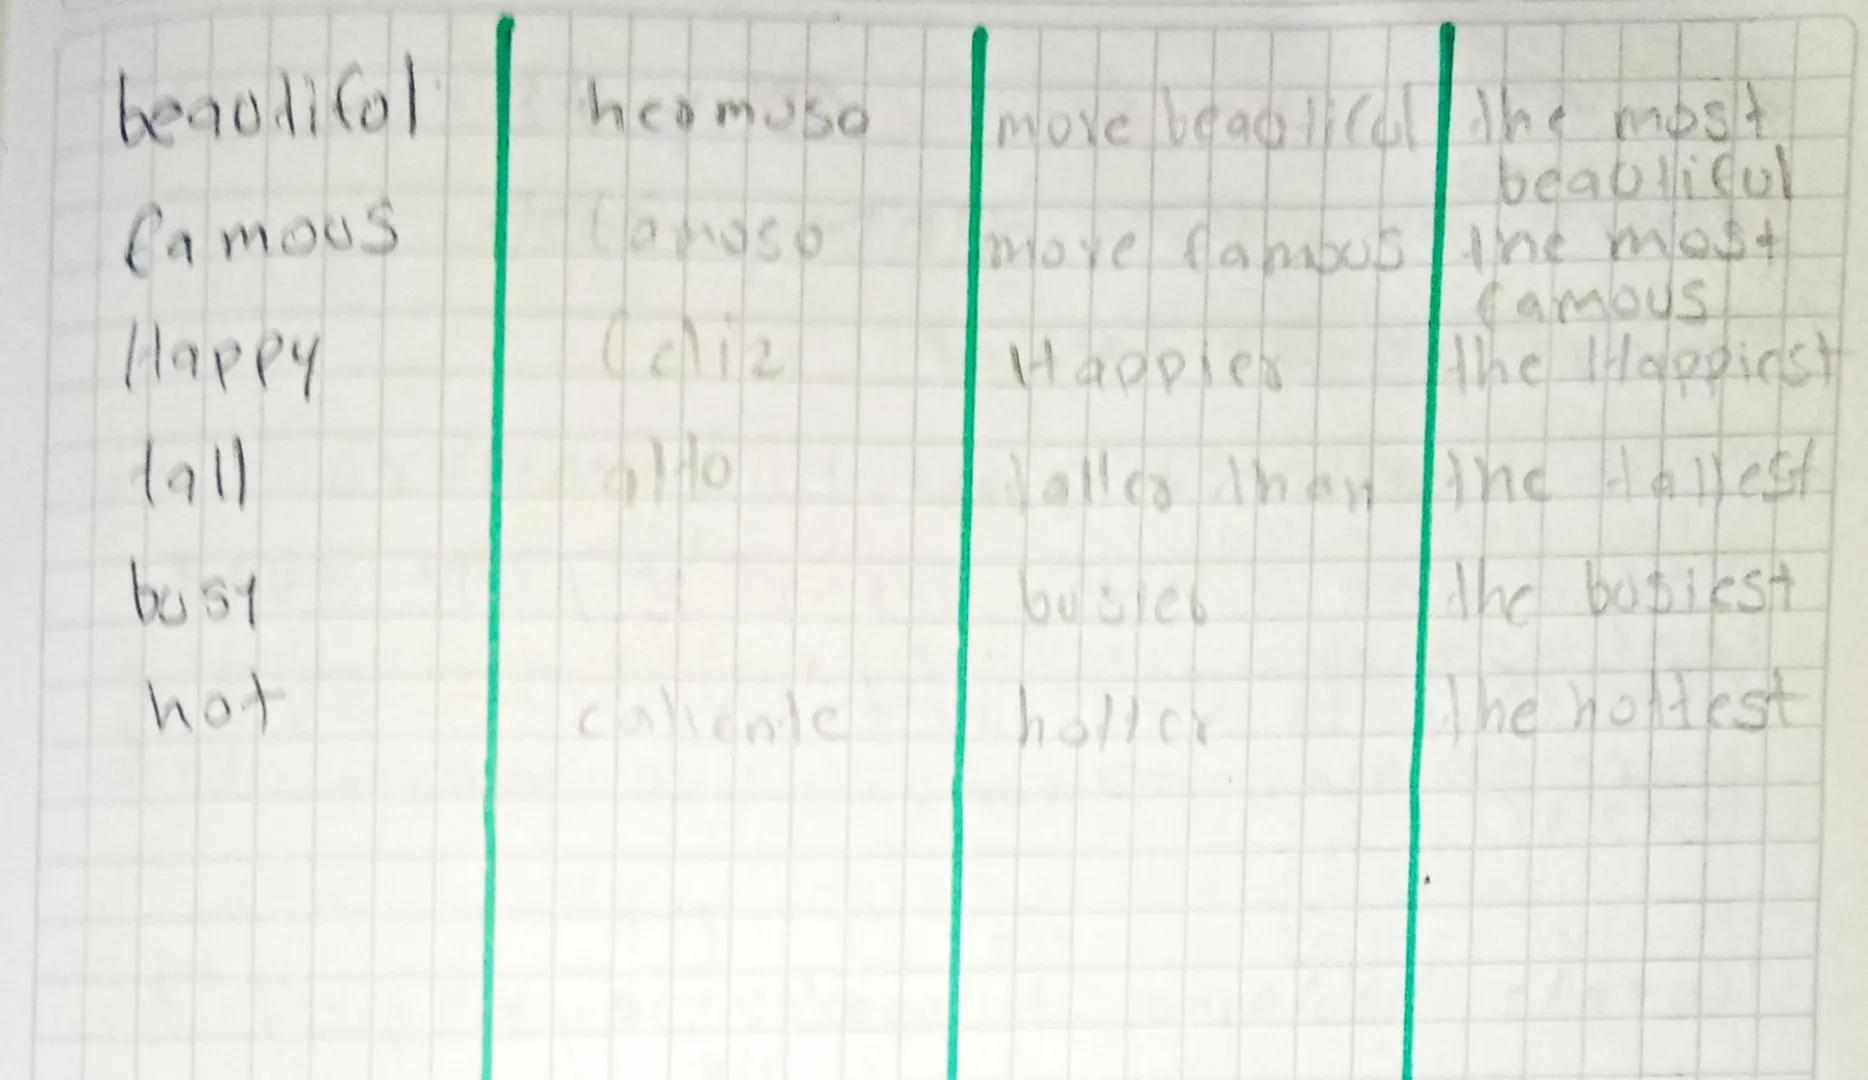 beautiful hermoso more beautiful the most
beautiful
famous famoso more famous the most
famous
Happy feliz Happier the Happiest
tall alto taller than the tallest
busy busier the busiest
hot caliente hotter the hottest